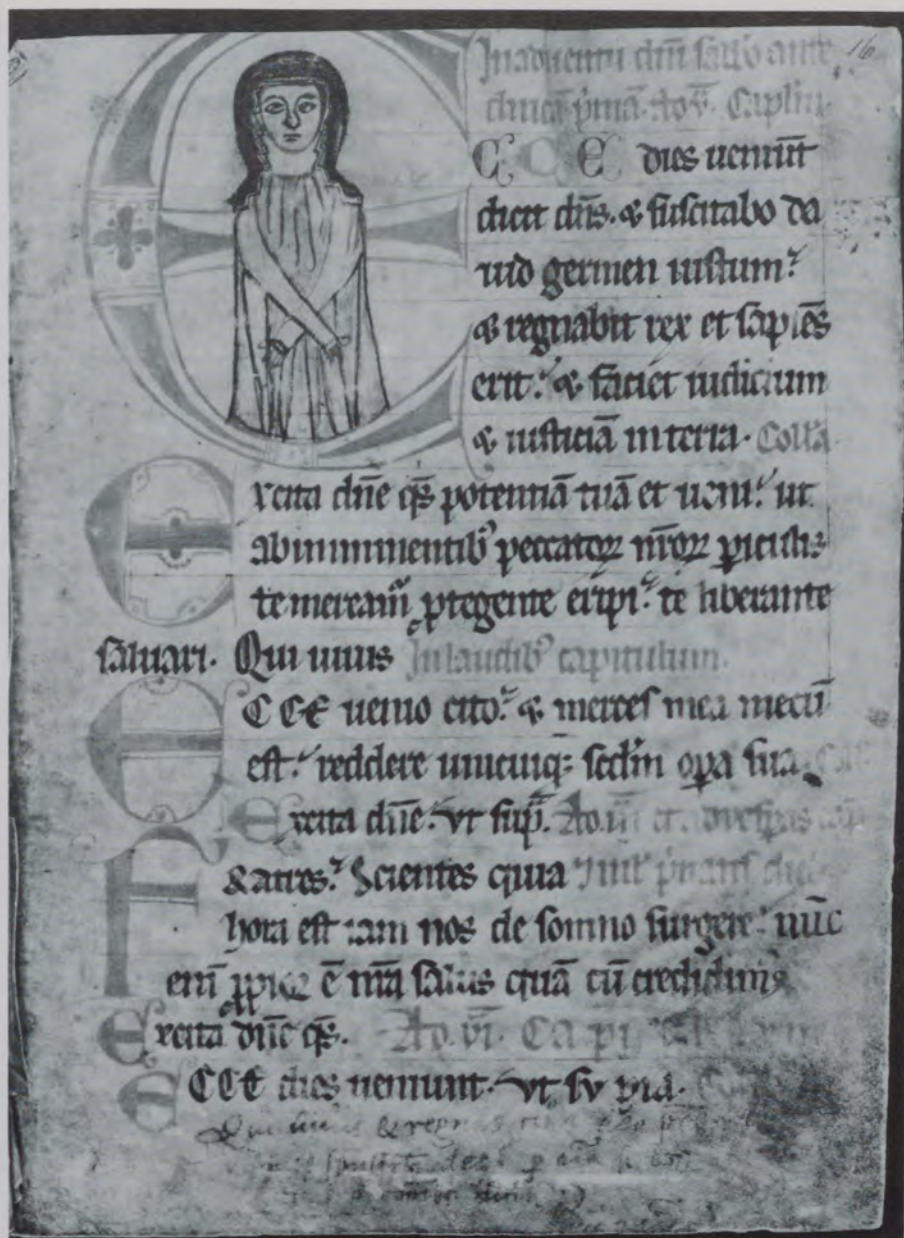 16
In aduentu dn̄i sabb̄o ante
dn̄icā p̓mā. Ad v̄. Capl̄m.
ECCE dies ueniūt
dicit dn̄s. & suscitabo da
uid germen iustum:
& regnabit rex et sapiēs
erit: & faciet iudicium
& iusticiā in terra. Coll̄a
Excita dn̄e q̄s potentiā tuā et ueni: ut
ab imminentib᷒ peccatoꝝ nr̄oꝝ piculis
te meream̄ ꝓtegente eripi: te liberante
saluari. Qui uiuis In laudib᷒ capitulum.
ECCE uenio cito: & merces mea mecū
est: reddere unicuiq; scdm̄ opa sua.
Excita dn̄e: vt sup̄. Ad .iii. et ad vespas cap̄
FRatres: Scientes quia
hora est iam nos de somno surgere: nūc
eni̅ ꝓpior ē nr̄a salus quā cū credidim᷒
Excita dn̄e q̄s. Ad .vi. Capi
ECCE dies ueniunt. vt supra.
Qui uiuis & regnas